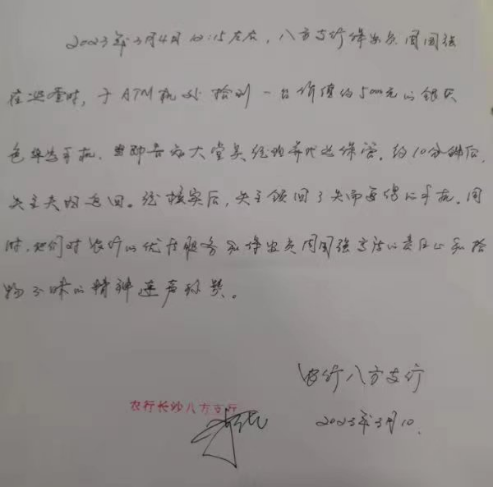 2023年3月4日10:15左右，八方支行保安员周国强
在巡查时，于ATM机处捡到一台价值约5000元的银灰
色华为手机，当即告知大堂吴经理并代为保管。约10分钟后，
失主夫妇返回。经核实后，失主领回了失而复得的手机。同
时，他们对农行的优质服务和保安员周国强高洁的责任心和拾
物不昧的精神连声称赞。
农行八方支行
农行长沙八方支行
2023年3月10.